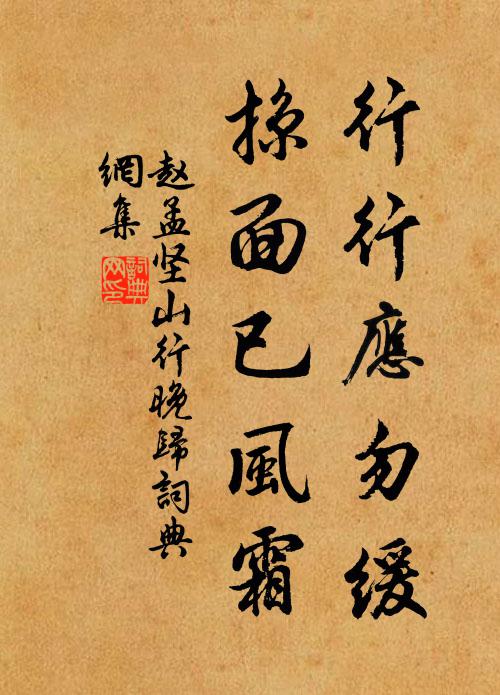 行行應勿緩
掠面已風霜
赵孟坚山行晚歸詞典
網集
詞典
网印